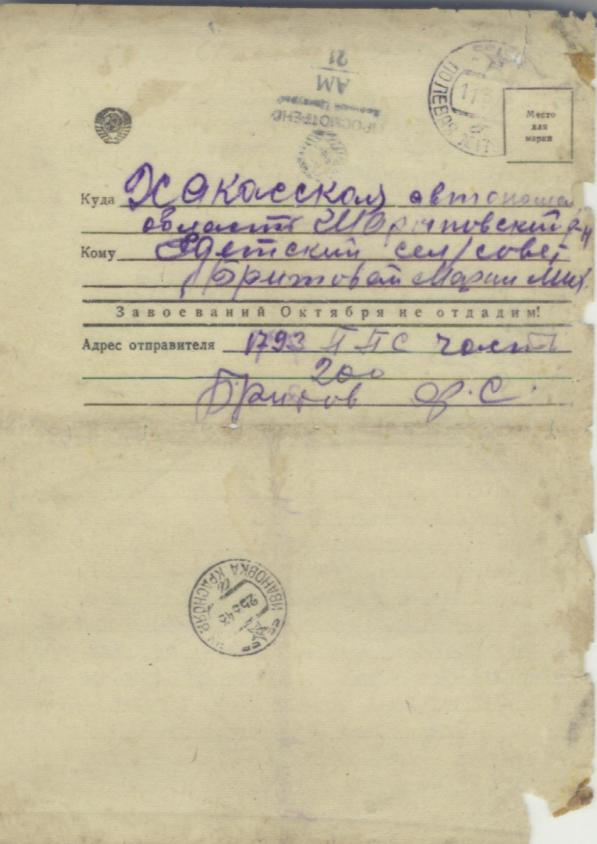 21
АМ
ПРОСМОТРЕНО
Военной Цензурой
Место
для
марки
Куда Хакасская автономн
область Шарыповский р-н
Кому Едетский сел/совет
Бритовой Марии Мих.
Завоеваний Октября не отдадим!
Адрес отправителя 1793 ППС часть
200
Бритов С.
ИВАНОВКА КРАСНОЯР